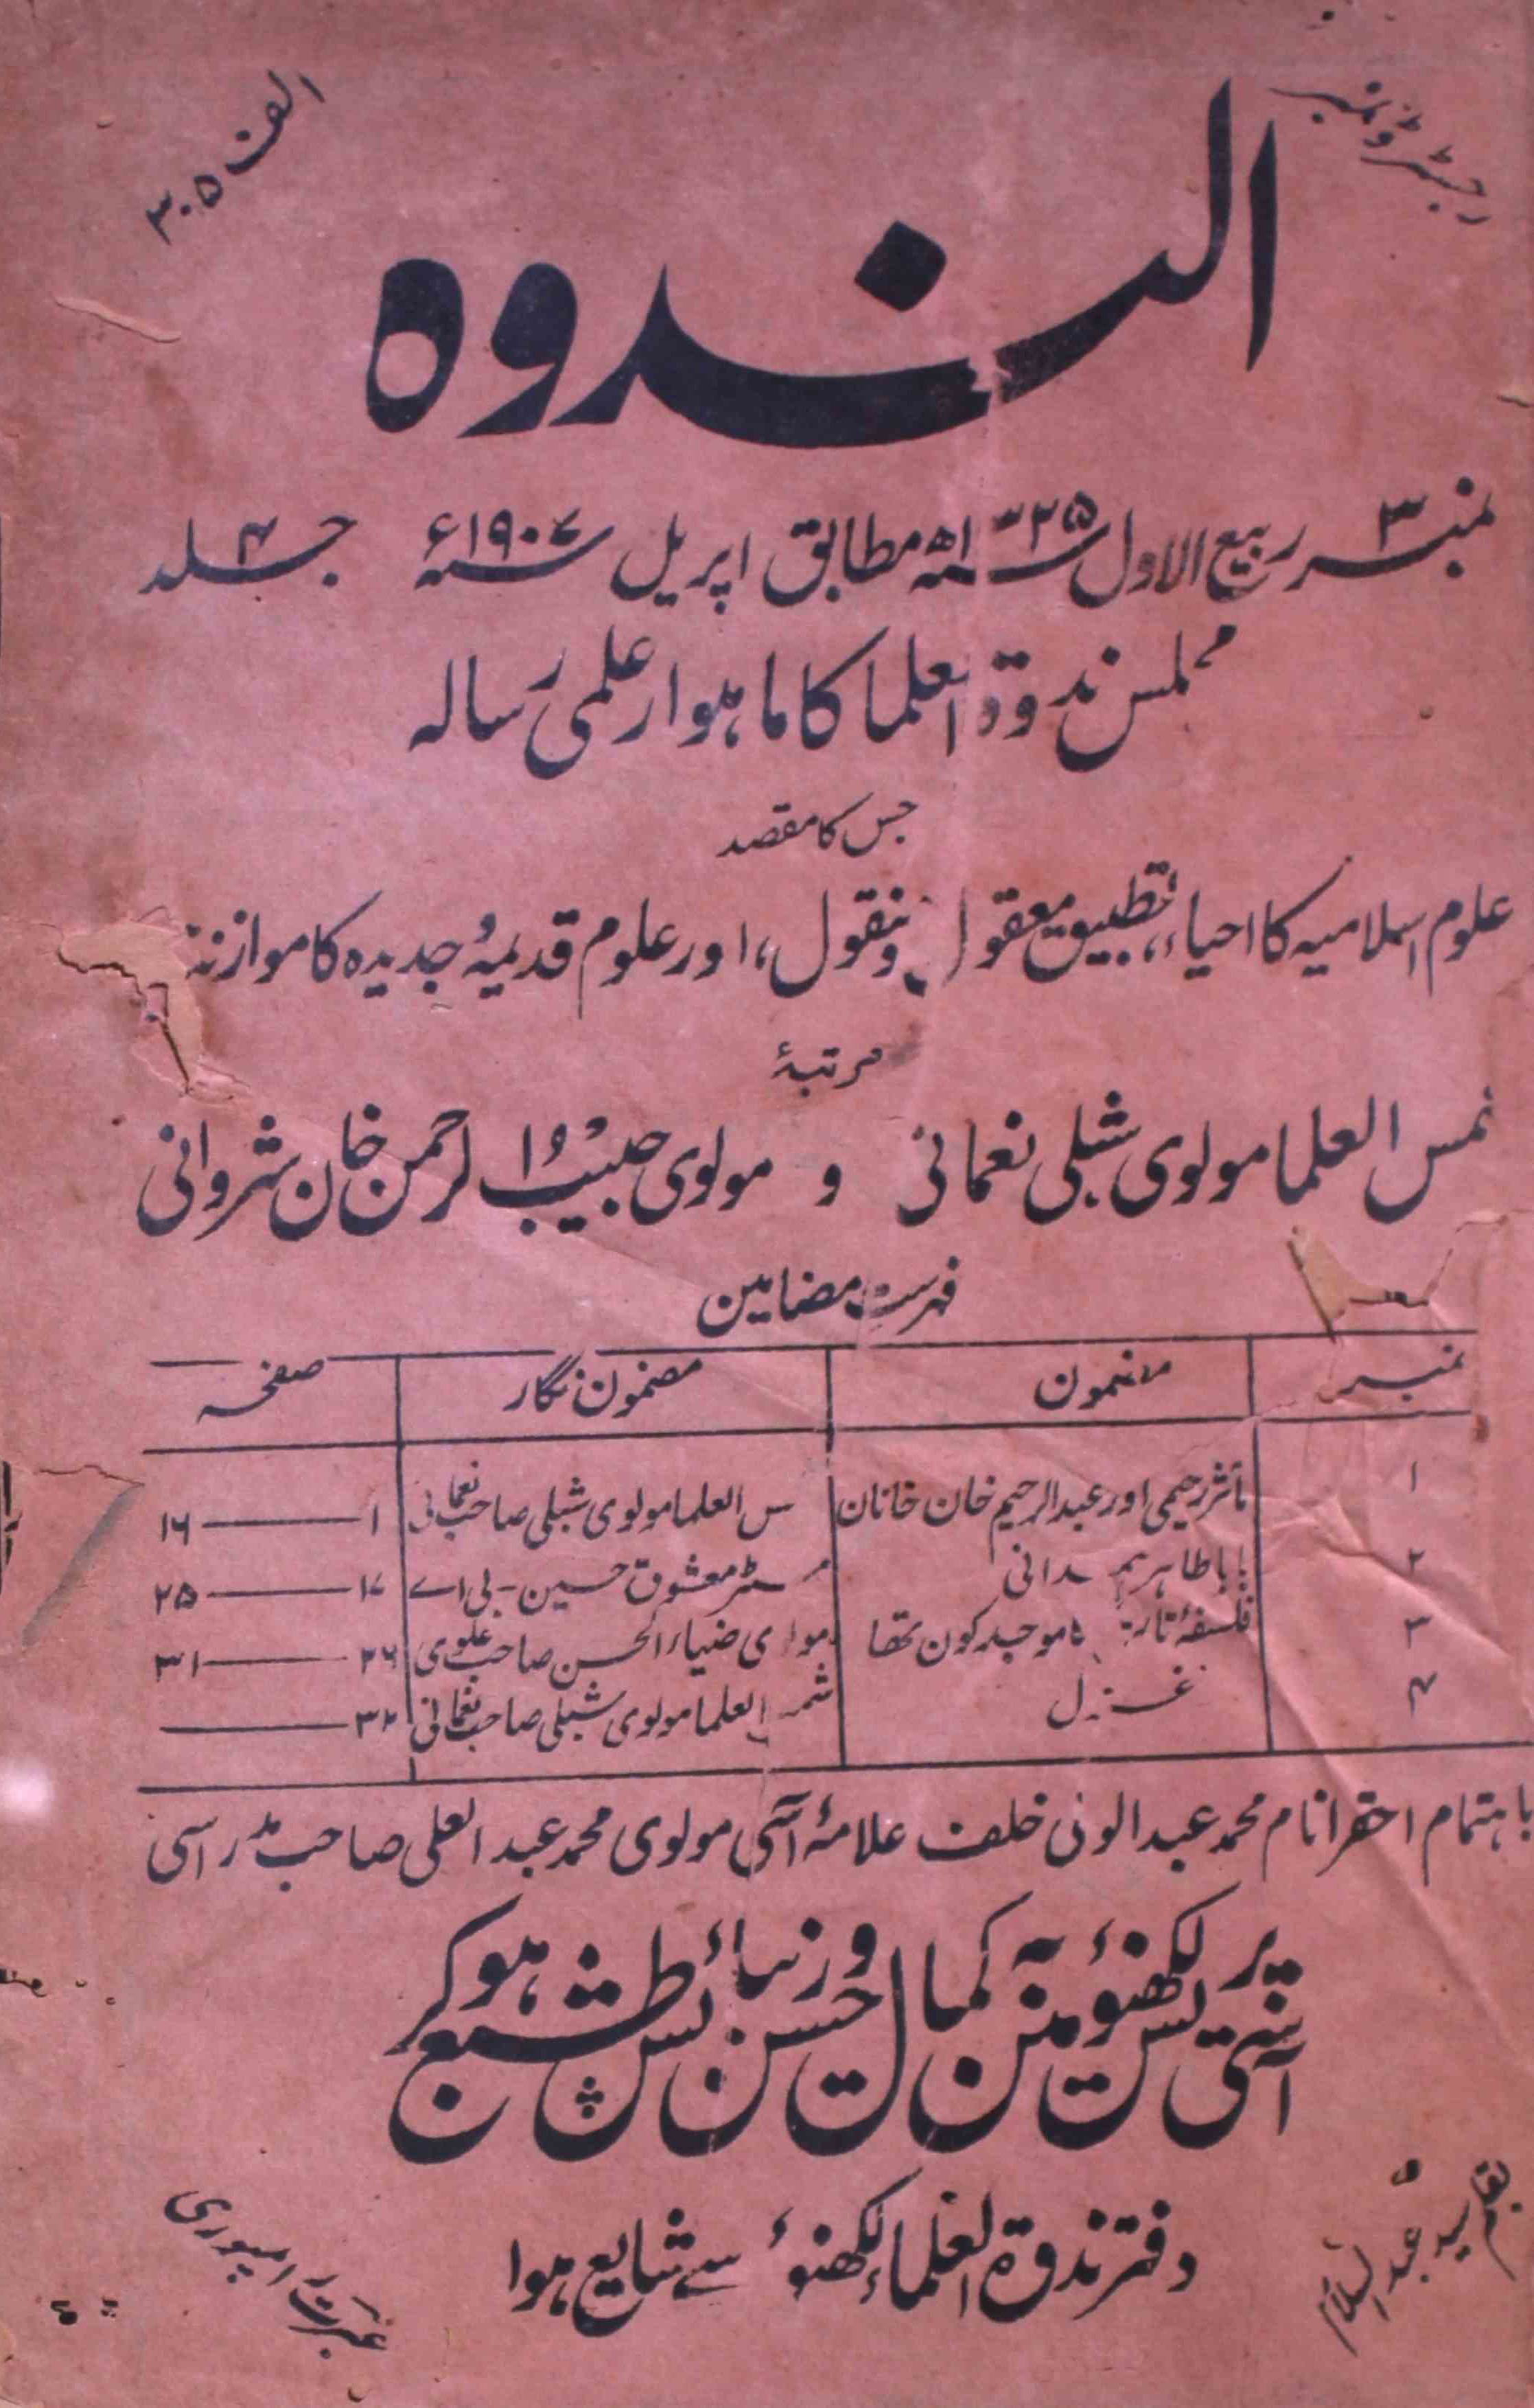 رجسٹرڈ نمبر
الف ۳۰۵
الندوہ
نمبر ۳ ربیع الاول سنہ ۱۳۲۵ھ مطابق اپریل سنہ ۱۹۰۷ء جلد ۴
مجلس ندوۃ العلما کا ماہوار علمی رسالہ
جس کا مقصد
علوم اسلامیہ کا احیاء، تطبیق معقول و منقول، اور علوم قدیمہ و جدیدہ کا موازنہ
مرتبۂ
شمس العلما مولوی شبلی نعمانی و مولوی حبیب الرحمن خان شروانی
فہرست مضامین
نمبر مضمون مضمون نگار صفحہ
۱ مآثر رحیمی اور عبدالرحیم خان خانان شمس العلما مولوی شبلی صاحب نعمانی ۱ — ۱۶
۲ بابا طاہر ہمدانی مسٹر معشوق حسین - بی اے ۱۷ — ۲۵
۳ فلسفۂ تاریخ کا موجد کون تھا مولوی ضیاء الحسن صاحب علوی ۲۶ — ۳۱
۴ غزل شمس العلما مولوی شبلی صاحب نعمانی ۳۲ —
باہتمام احقر انام محمد عبدالولی خلف علامۂ آسی مولوی محمد عبدالعلی صاحب مدراسی
آسی پریس لکھنؤ مین کمال حسن و زیبائش سے طبع ہوکر
دفتر ندوۃ العلماء لکھنؤ سے شایع ہوا
بقلم سید عبدالسلام
عبرت رامپوری